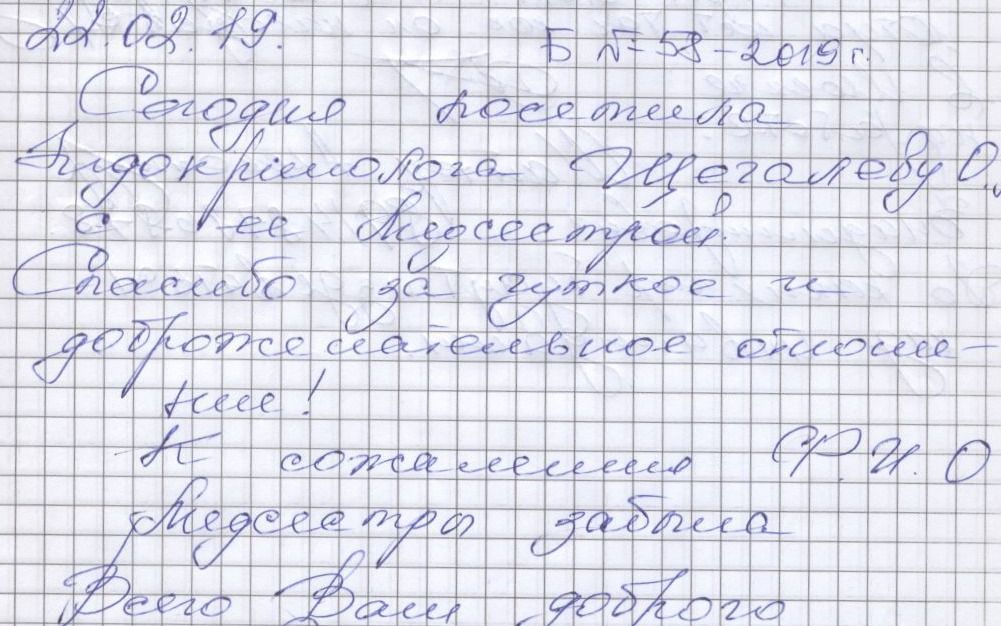 22.02.19. Б № 58-2019г.
Сегодня посетила
Эндокринолога Щегалеву О.,
с ее Медсестрой.
Спасибо за чуткое и
доброжелательное отноше-
ние!
К сожаления Ф.И.О
Медсестры забыла
Всего Вам доброго